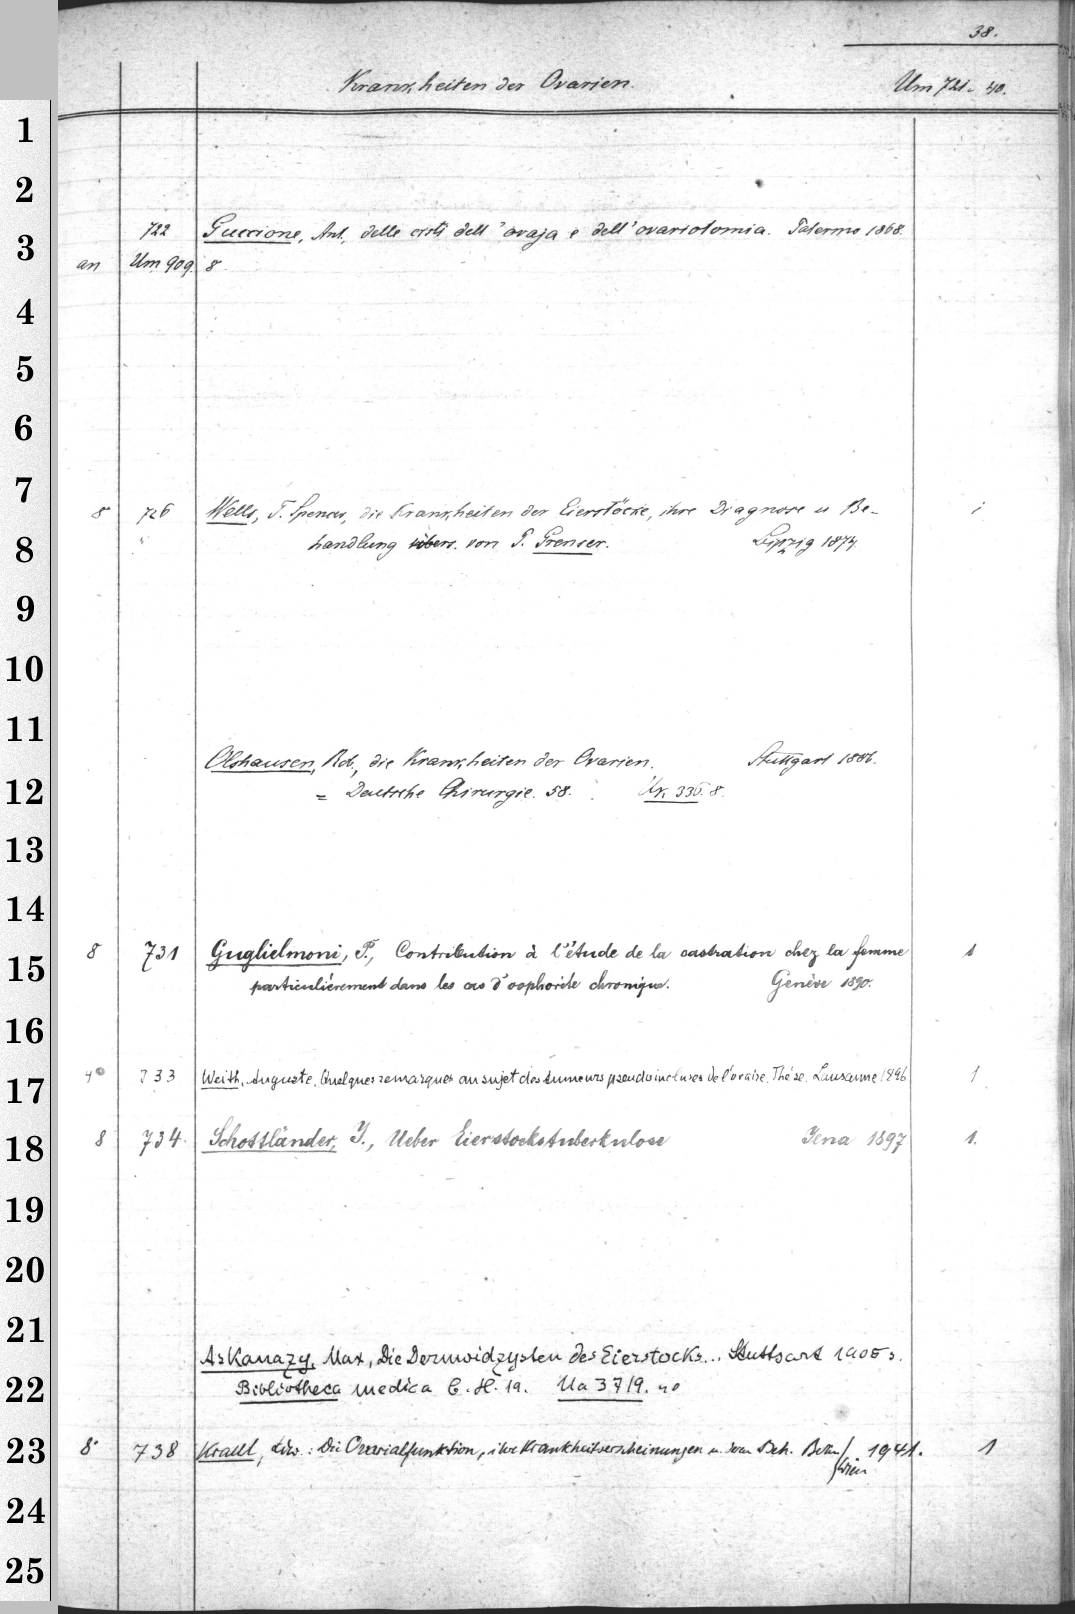 38.
Krankheiten der Ovarien. Um 721-40.
1
2
722 Guccione, Ant., delle cisti dell'ovaja e dell'ovariotomia. Palermo 1868.
3
an Um 909. 8.
4
5
6
7
8 726 Wells, T. Spencer, die Krankheiten der Eierstöcke, ihre Diagnose u Be-
handlung übers. von P. Grenser. Leipzig 1874.
8
9
10
11
Olshausen, Rob., die Krankheiten der Ovarien. Stuttgart 1886.
= Deutsche Chirurgie. 58. 8.
12
13
14
8 731 Guglielmoni, P., Contribution à l'étude de la castration chez la femme 1
15
particulièrement dans les cas d'oophorite chronique. Genève 1890.
16
4° 733 Weith, Auguste, Quelques remarques au sujet des tumeurs pseudoincluses de l'ovaire. Thèse. Lausanne 1896 1
17
8 734. Schottländer, J., Ueber Eierstockstuberkulose Jena 1897 1.
18
19
20
21
Askanazy, Max, Die Dermoidzysten des Eierstocks... Stuttgart 1905.
22
Bibliotheca medica C. H. 19. Ua 3719. 4°
23
8° 738 Kraul, Ldw.: Die Ovarialfunktion, ihre Krankheitserscheinungen u. deren Beh. Berlin/ 1941. 1
Wien
24
25